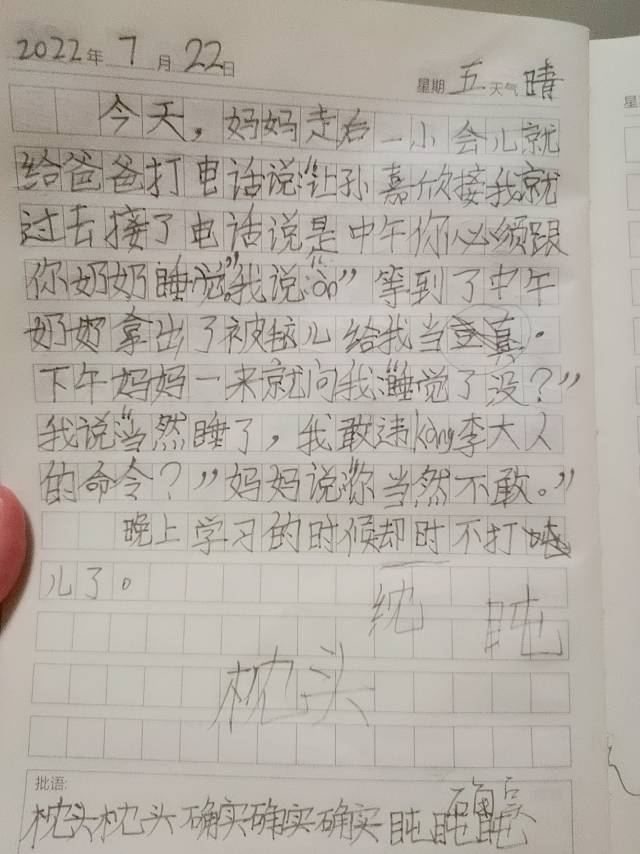 2022年7月22日
星期五天气晴
今天，妈妈走后一小会儿就
给爸爸打电话说“让孙嘉欣接我就
过去接了电话说是中午你必须跟
你奶奶睡觉”我说“ōn”等到了中午
奶奶拿出了被 儿给我当 真.
下午妈妈一来就问我“睡觉了没？”
我说“当然睡了，我敢违kàng李大人
的命令？”妈妈说“你当然不敢。”
晚上学习的时候却时不打盹
儿了。
枕 盹
枕头
批语:
枕头枕头确实确实确实盹盹盹
确